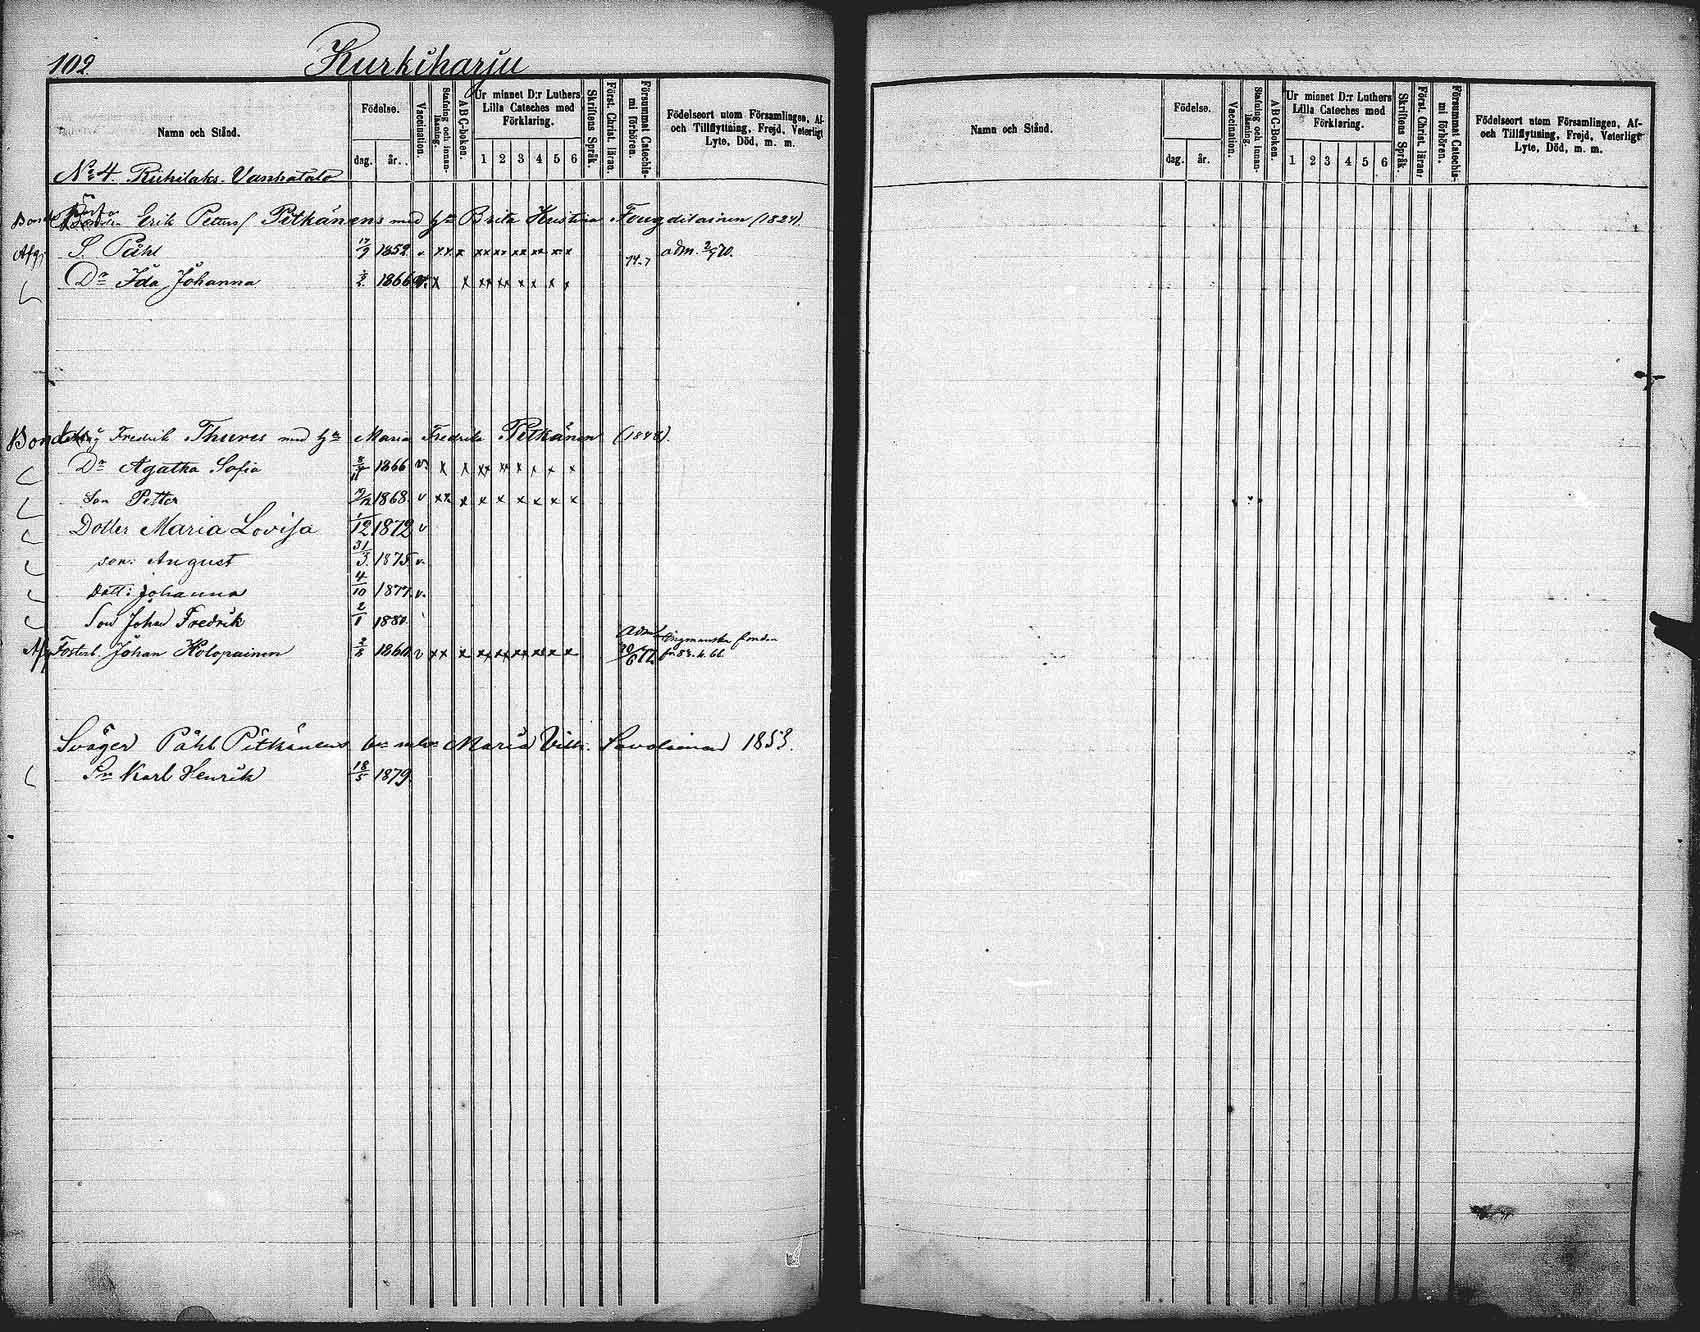 102. Kurkiharju
Namn och Stånd.
Födelse.
dag. år.
Vaccination.
Stafning och innan-läsning.
ABC-boken.
Ur minnet D:r Luthers Lilla Cateches med Förklaring.
1 2 3 4 5 6
Skriftens Språk.
Först. Christ. läran.
Försummat Catechis-mi förhören.
Födelseort utom Församlingen, Af-
och Tillflyttning, Frejd, Veterligt
Lyte, Död, m. m.
No 4. Riihilaks. Vanhatalo
Bonde Erik Petters/ Pitkänens med h:u Brita Kristina (1824).
Afg. S. Påhl 17/9 1852. v xx x xx xx xx xx x x 74-7 adm. 2/9 70.
Dr Ida Johanna 1866 v. x x xx xx x x x x
Bonde Fredrik Thures med h:u Maria Fredrika Pitkänen (1848).
Dr Agatha Sofia 1866 v. x x xx xx x x x x
Son Petter 1868. v xx x x x x x x x
Dotter Maria Lovisa 1/12 1872 v
son: August 31/3. 1875. v.
Dott: Johanna 4/10 1877. v.
Son Johan Fredrik 2/1 1880.
Afg Fosterb. Johan Holopainen 1860 v xx x xx xx xx xx x x
Svåger Påhl Pitkänens Maria Vilh. Savolainen 1853.
Sn Karl Henrik 18/5 1879.
Namn och Stånd.
Födelse.
dag. år.
Vaccination.
Stafning och innan-läsning.
ABC-Boken.
Ur minnet D:r Luthers Lilla Cateches med Förklaring.
1 2 3 4 5 6
Skriftens Språk.
Först. Christ. läran.
Försummat Catechis-mi förhören.
Födelseort utom Församlingen, Af-
och Tillflyttning, Frejd, Veterligt
Lyte, Död, m. m.